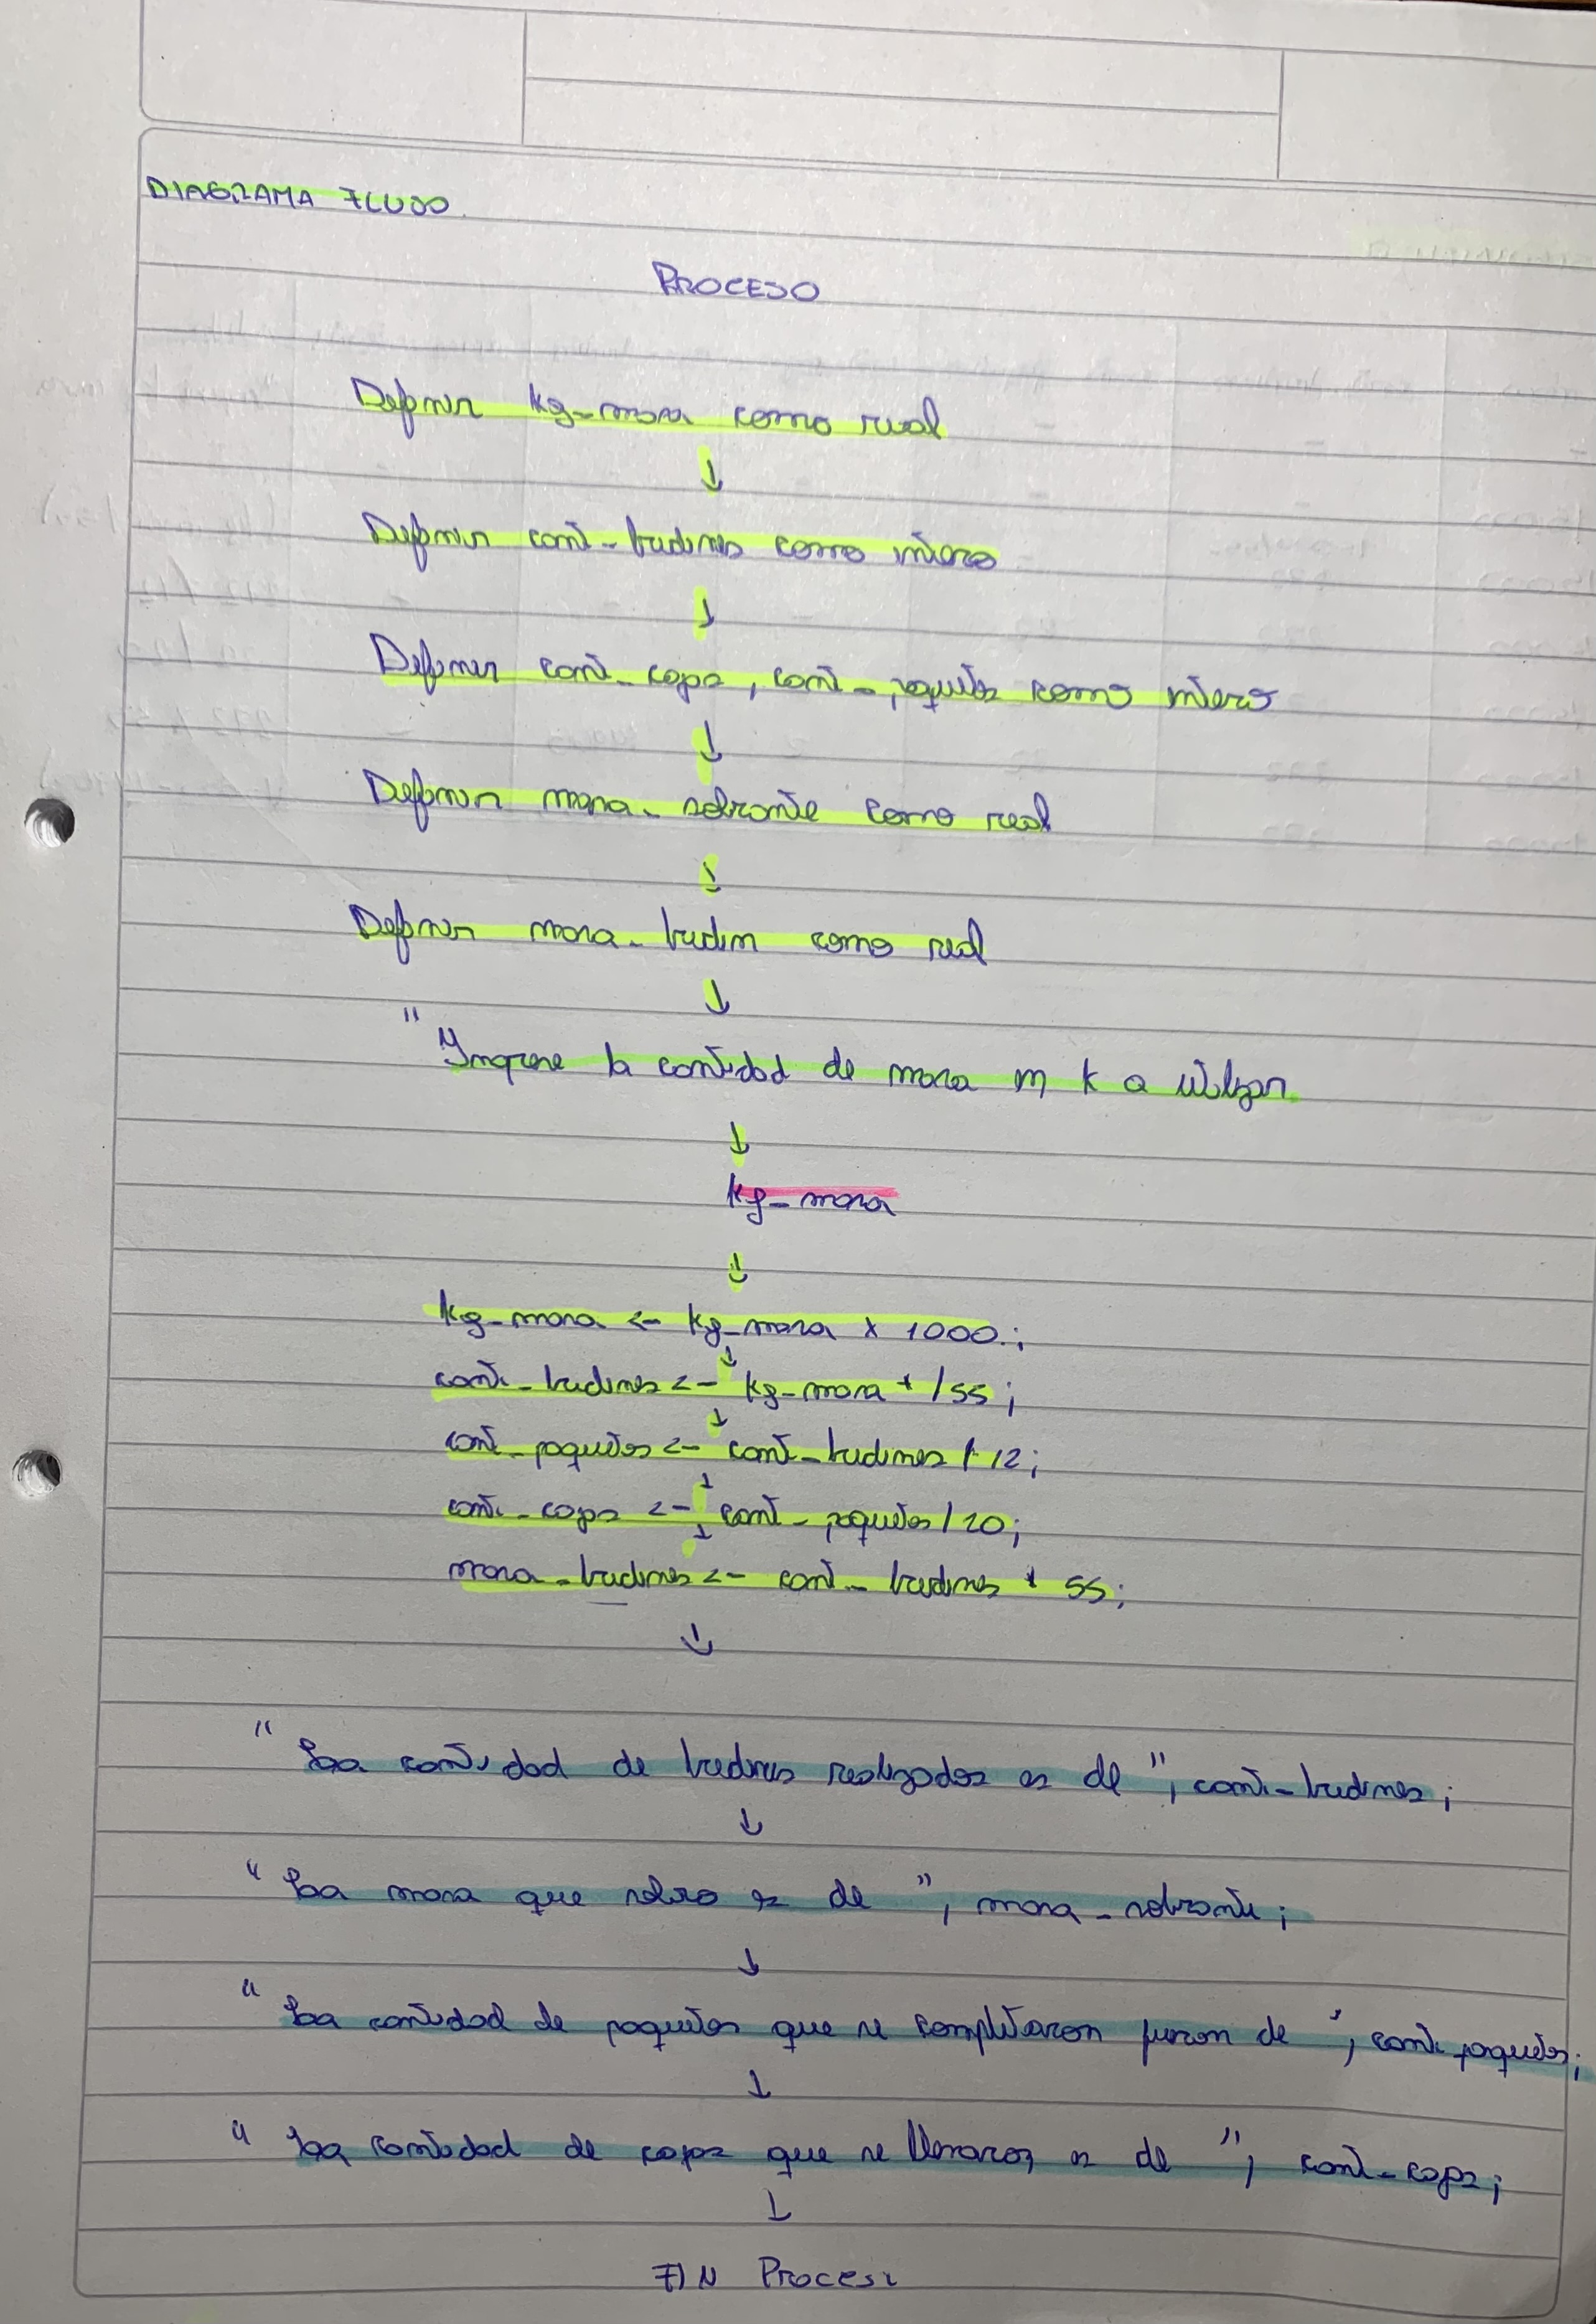 DIAGRAMA FLUJO
PROCESO
Definir kg-masa como real
↓
Definir cant-budines como entero
↓
Definir cant-cajas, cant-paquetes como entero
↓
Definir masa-sobrante como real
↓
Definir masa-budin como real
↓
"Ingrese la cantidad de masa en k a utilizar
↓
kg-masa
↓
kg-masa <- kg-masa x 1000.;
↓
cant-budines <- kg-masa * /55;
↓
cant-paquetes <- cant-budines / 12;
↓
cant-cajas <- cant-paquetes / 20;
↓
masa-budines <- cant-budines * 55;
↓
"La cantidad de budines realizados es de", cant-budines;
↓
"La masa que sobro es de", masa-sobrante;
↓
"La cantidad de paquetes que se completaron fueron de ', cant-paquetes;
↓
"La cantidad de cajas que se llenaron es de", cant-cajas;
↓
FIN Proceso